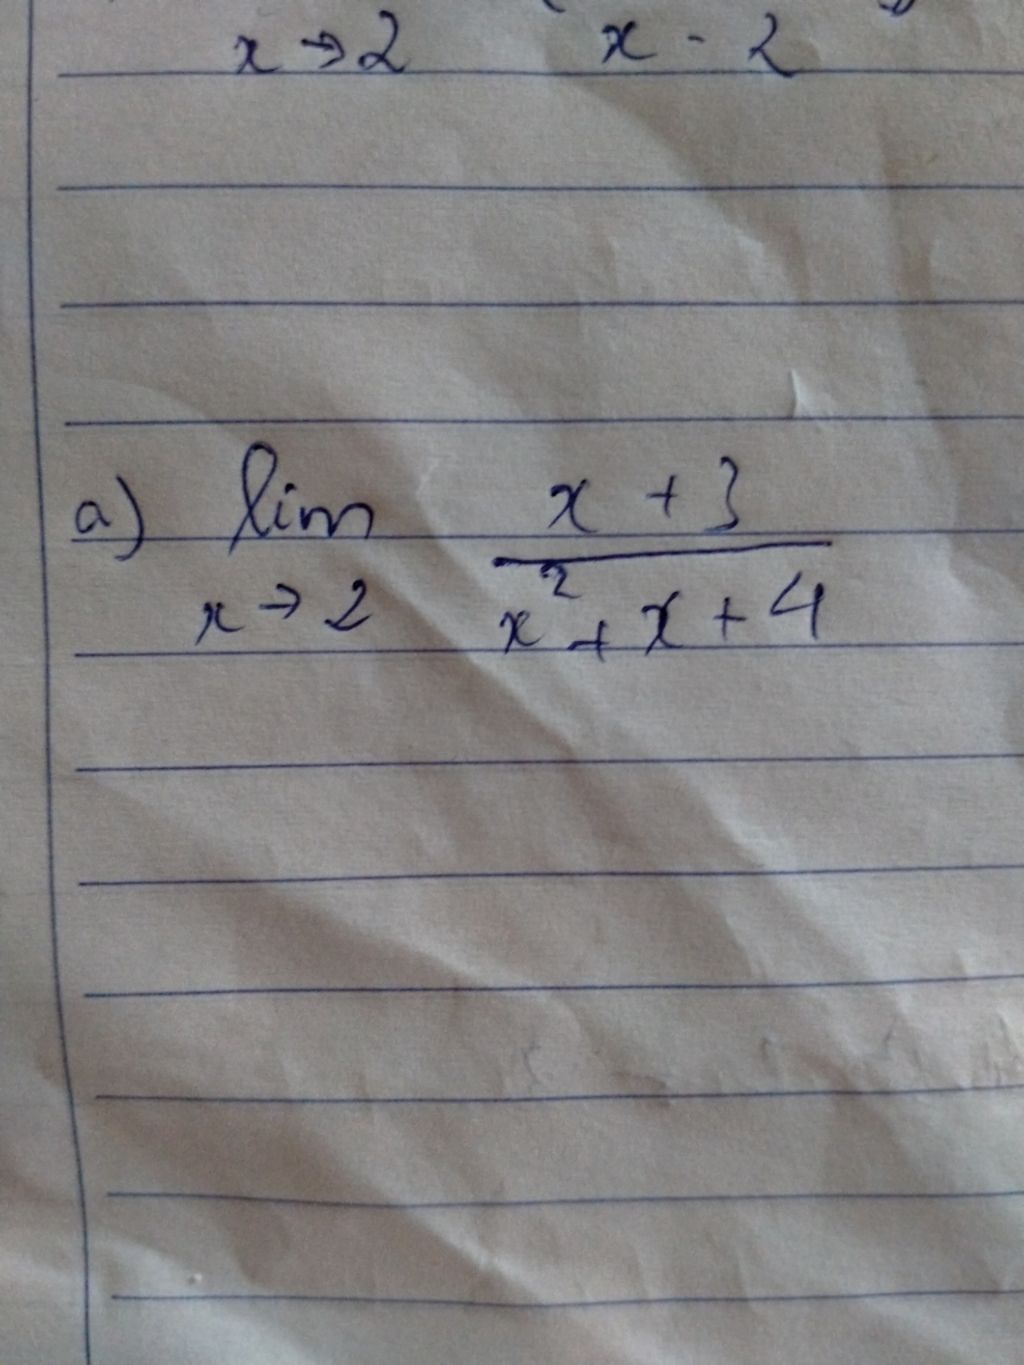 x → 2 x - 2
a) lim x + 3
x → 2 x² + x + 4